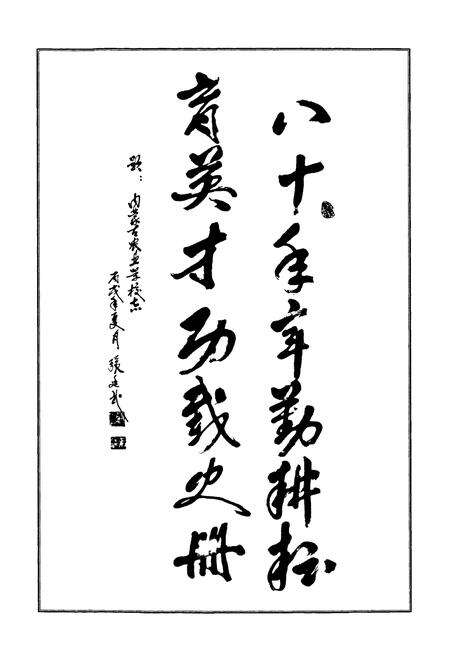 八十年辛勤耕耘
育英才功载史册
题：内蒙古农业学校志
丙戌年夏月 张廷武